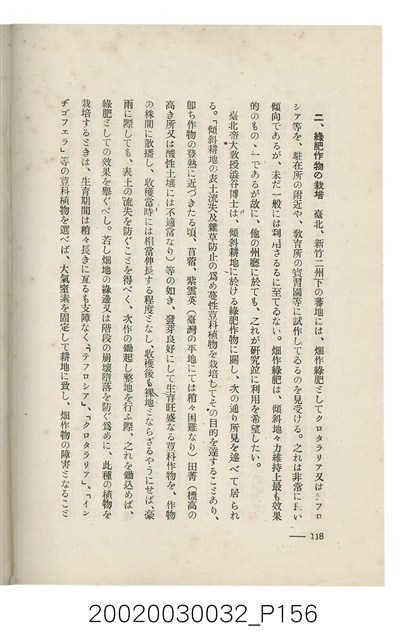 二、綠肥作物の栽培　臺北、新竹二州下の蕃地には、畑作綠肥としてクロタラリア又は
シア等を、駐在所の附近や、敎育所の實習園等に試作してゐるのを見受ける。之れは非常に良い
傾向であるが、未だ一般には利用さるるに至てゐない。畑作綠肥は、傾斜地々力維持上最も效果
的のもの丶一であるが故に、他の州廳に於ても、之れが硏究竝に利用を希望したい。
臺北帝大敎授澁谷博士は、傾斜耕地に於ける綠肥作物に關し、次の通り所見を述べて居られ
る。「傾斜耕地の表土流失及雜草防止の爲め蔓性荳科植物を栽培して其の目的を達することあり、
卽ち作物の登熟に近づきたる頃、苜蓿、紫雲英（臺灣の平地にては稍々困難なり）田菁（標高の
高き所又は酸性土壤には不適當なり）等の如き、發芽良好にして生育旺盛なる荳科作物を、作物
の株間に散播し、收穫當時には相當伸長する程度となし、收穫後も裸地とならざるやうにせば、豪
雨に際しても、表土の流失を防ぐことを得べく、次作の鋤起し整地を行ふ際、之れを鋤込めば、
綠肥としての效果を擧ぐべし。若し畑地の緣邊又は階段の崩壞墮落を防ぐ爲めに、此種の植物を
栽培するときは、生育期間は稍々長きに亙るも支障なく「テフロシア」、「クロタラリア」、「イン
ヂゴフエラ」等の荳科植物を選べば、大氣窒素を固定して耕地に致し、畑作物の障害となること
118
20020030032_P156